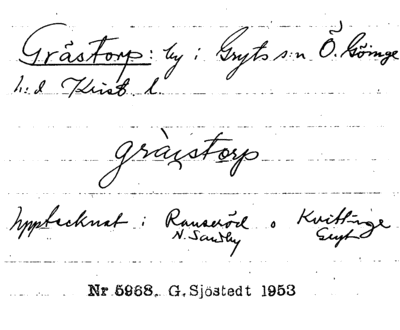 Gråstorp: by i Gryts s:n Ö. Göinge
h:d Krist. l.
gråistorp
Upptecknat i Ranseröd o Kvittinge
N. Sandby Gryt
Nr 5968. G. Sjöstedt 1953